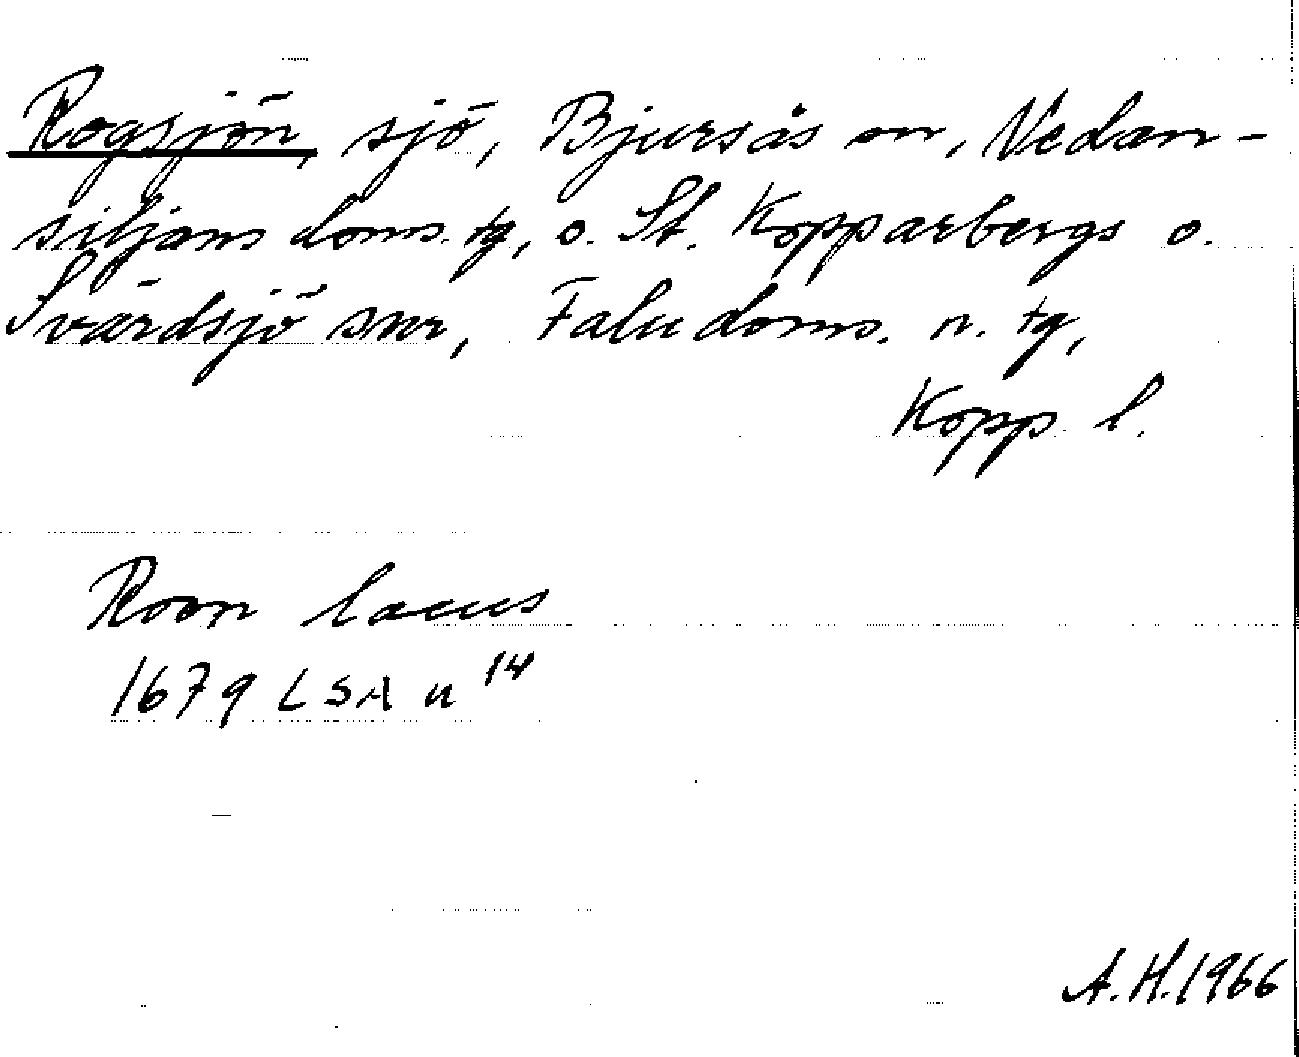 Rogsjön, sjö, Bjursås sn, Nedan-
siljans doms. tg, o. St. Kopparbergs o.
Svärdsjö snr, Falu doms. n. tg,
Kopp l.
Roen lacus
1679 LSA u 14
A.H. 1966